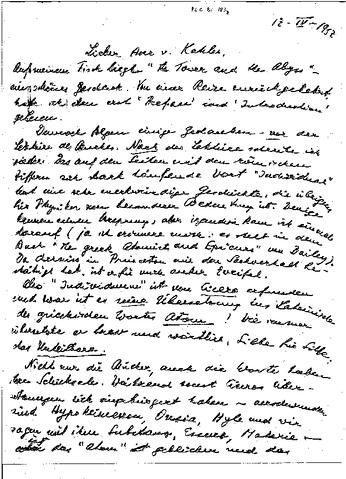 12-IV-1957
Lieber Herr v. Kahler,
Auf meinem Tisch liegt "The Tower and the Abyss" –
ein schönes Geschenk. Von einer Reise zurückgekehrt
habe ich den erst "Preface" und "Introduction"
gelesen.
Danach folgen einige Gedanken – vor der
Lektüre des Buches. Nach der Lektüre schreibe ich
wieder. Das auf den Seiten mit den römischen
Ziffern sich stark häufende Wort "Individuum"
hat eine sehr merkwürdige Geschichte, die übrigens
für Physiker von besonderer Bedeutung ist. Wenige
kennen seinen Ursprung, aber irgendwo kam ich einmal
darauf (ja ich erinnere mich: es steht in dem
Buch "The greek Atomists and Epicurus" von Bailey).
Da Cherniss in Princeton mir den Sachverhalt be-
stätigt hat, ist er für mich außer Zweifel.
Also "Individuum" ist von Cicero erfunden
und war ist es seine Übersetzung ins Lateinische
des griechischen Wortes Atom! Wie immer
übersetzte er brav und wörtlich, Silbe für Silbe:
das Unteilbare.
Nicht nur die Bücher, auch die Worte haben
ihre Schicksale. Während sonst Ciceros Über-
setzungen sich eingebürgert haben – verschwunden
sind Hypokeimenon, Ousia, Hyle und wir
sagen mit ihm Substanz, Essenz, Materia –
ist das "Atom" geblieben und das